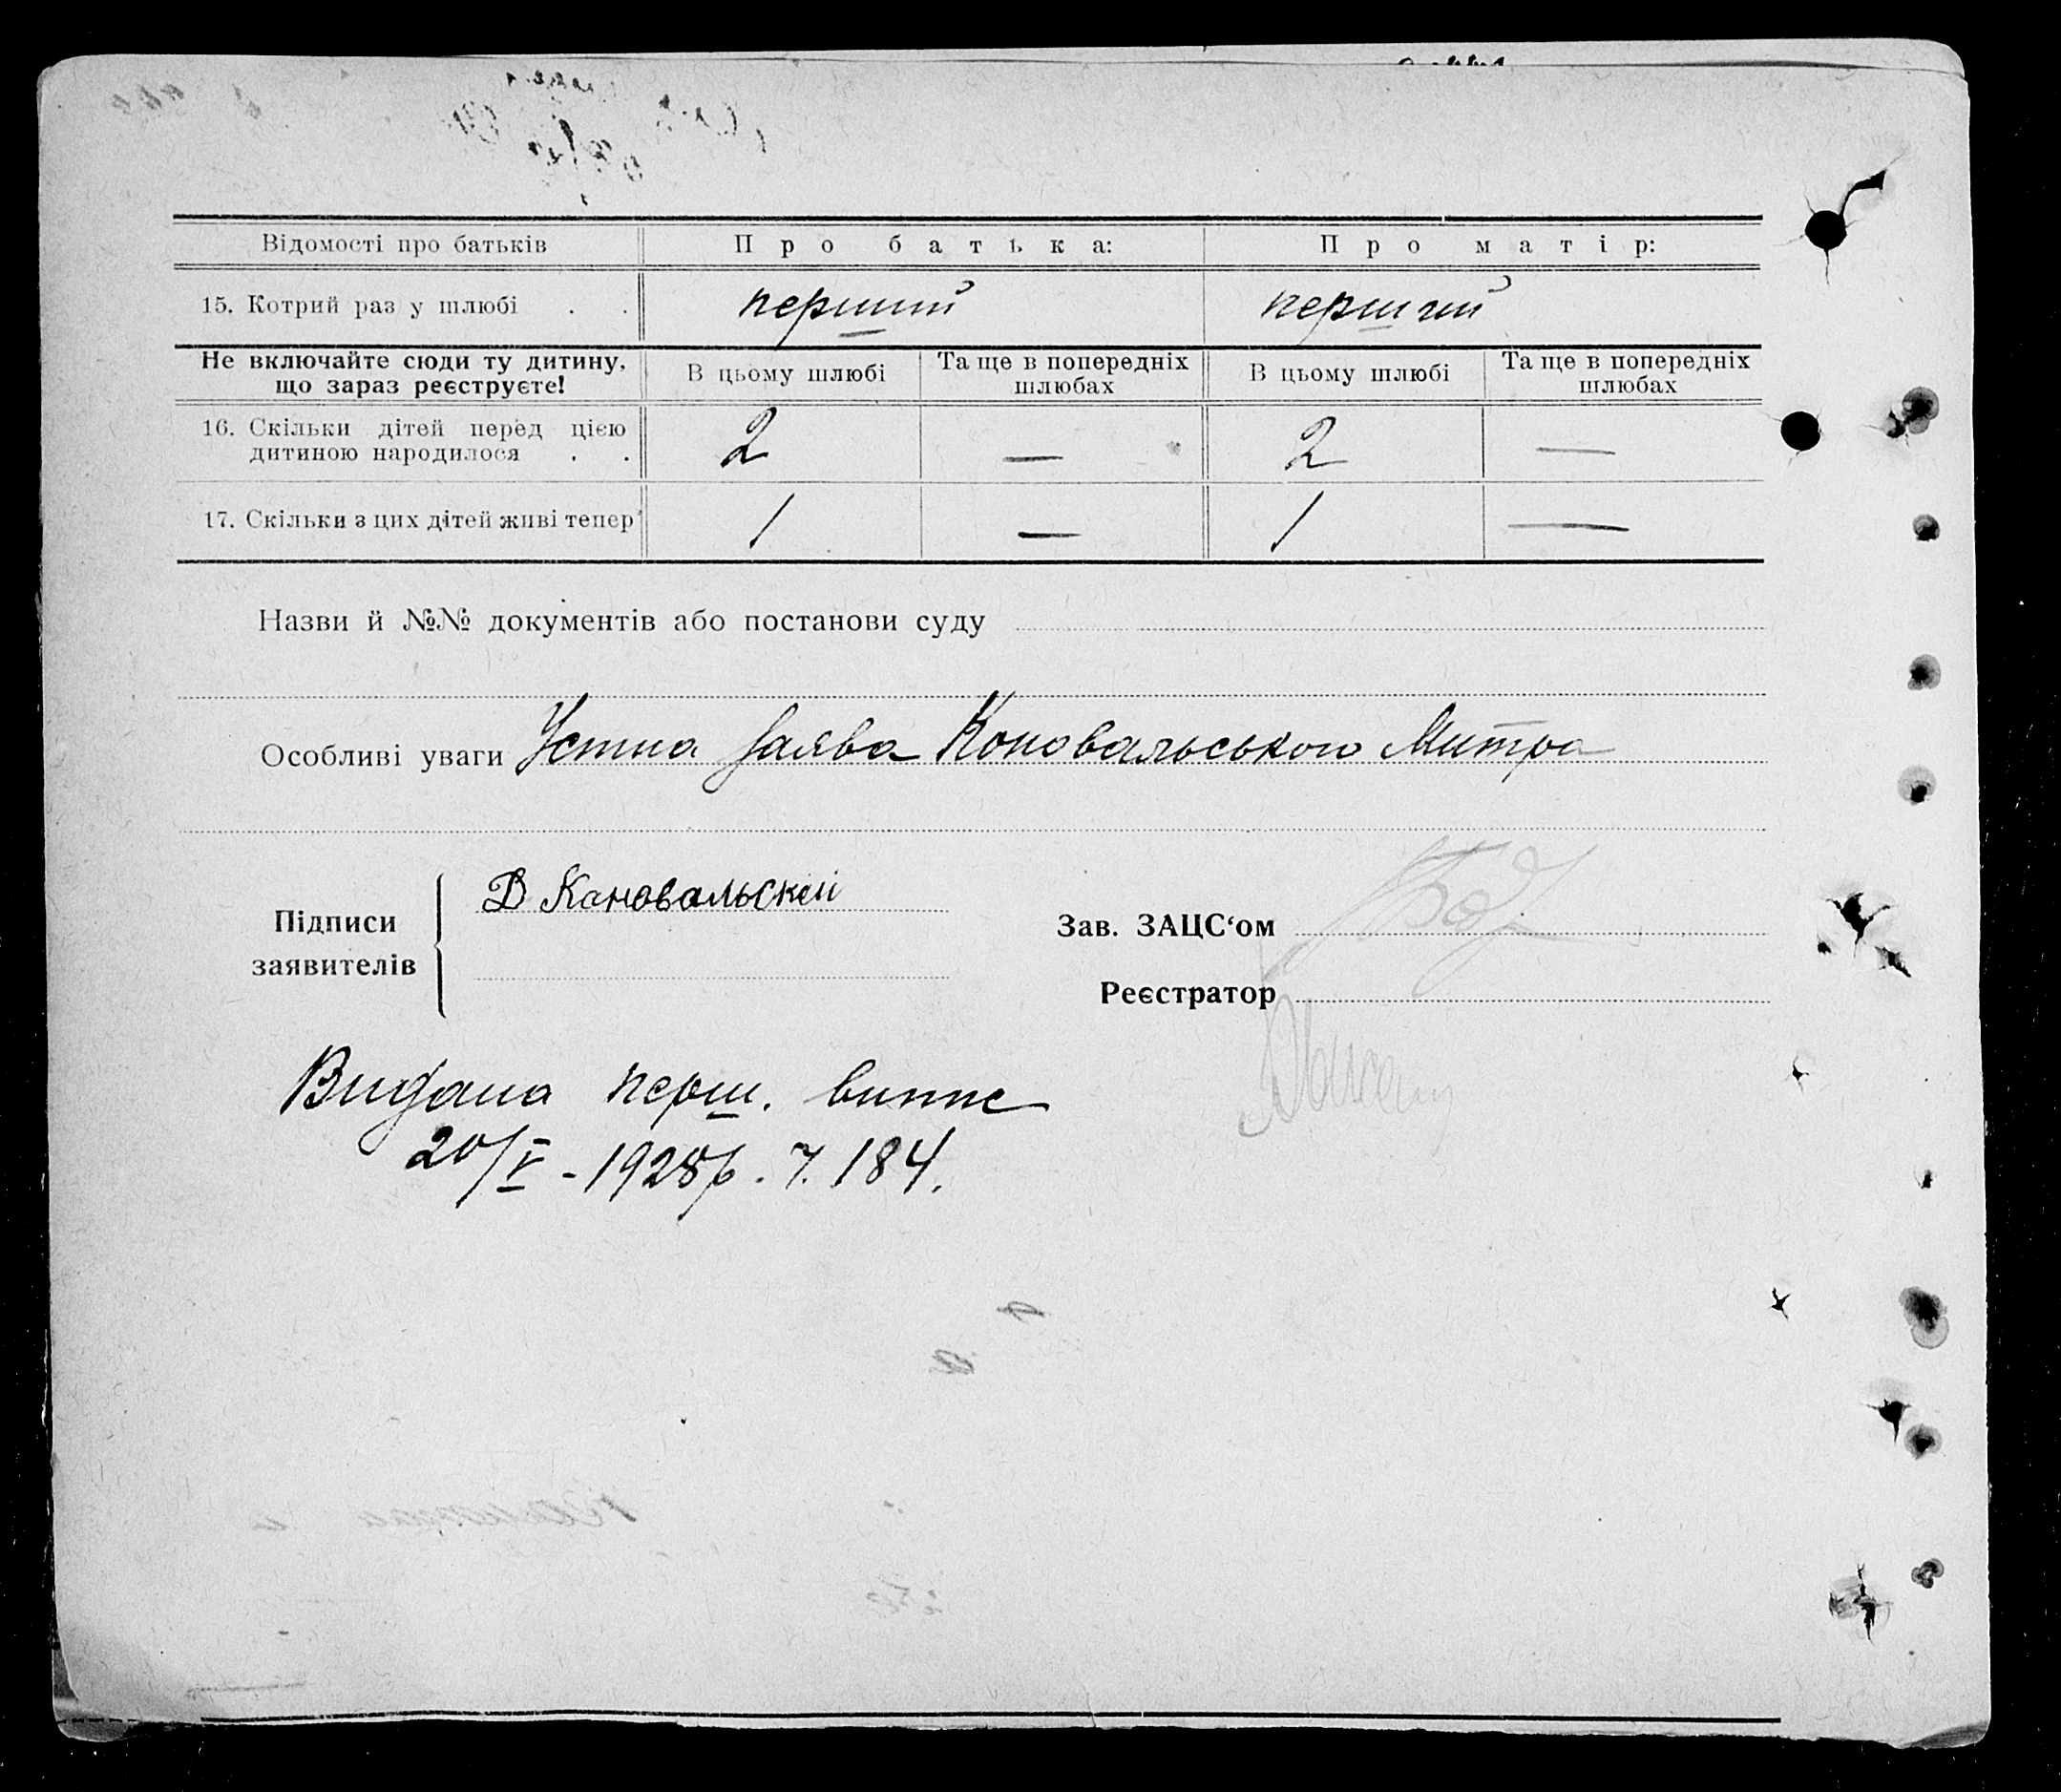 Відомості про батьків Про батька: Про матір:
15. Котрий раз у шлюбі . . перший перший
Не включайте сюди ту дитину, що зараз реєструєте! В цьому шлюбі Та ще в попередніх шлюбах В цьому шлюбі Та ще в попередніх шлюбах
16. Скільки дітей перед цією дитиною народилося . . 2 — 2 —
17. Скільки з цих дітей живі тепер 1 — 1 —
Назви й №№ документів або постанови суду
Особливі уваги Устна заява Коновальського Митра
Підписи заявителів
Д Кановальскей
Зав. ЗАЦС‘ом
Реєстратор
Видана перш. випис
20/V - 1928р. ч. 184.